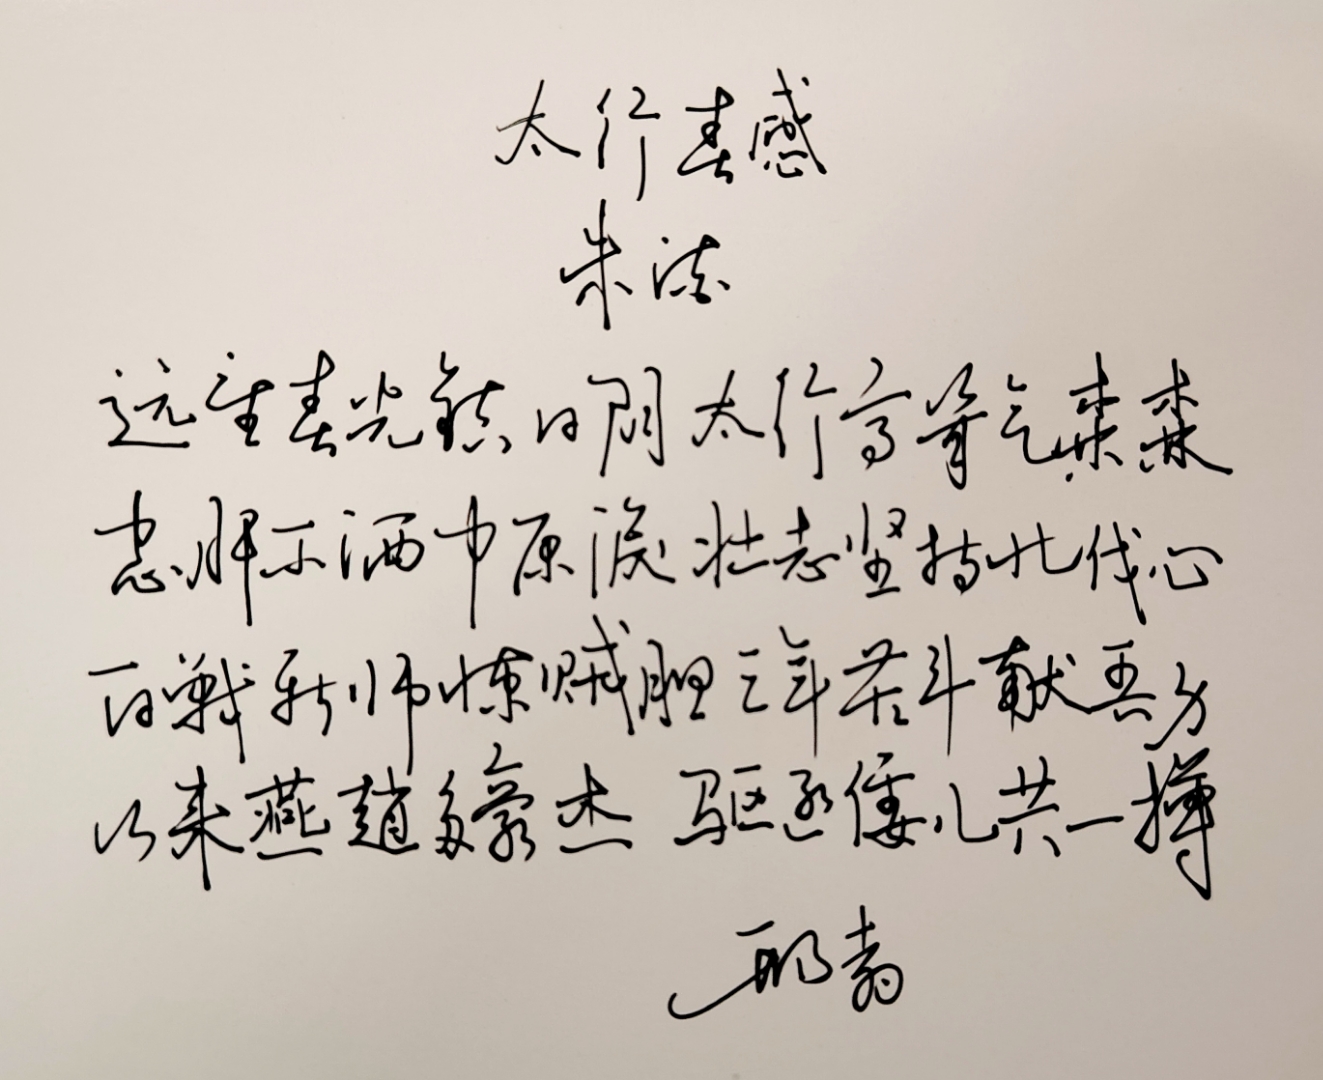 太行春感
朱德
远望春光镇日阴 太行高耸气森森
忠肝不洒中原泪 壮志坚持北伐心
百战新师惊贼胆 三年苦斗献吾身
从来燕赵多豪杰 驱逐倭儿共一樽